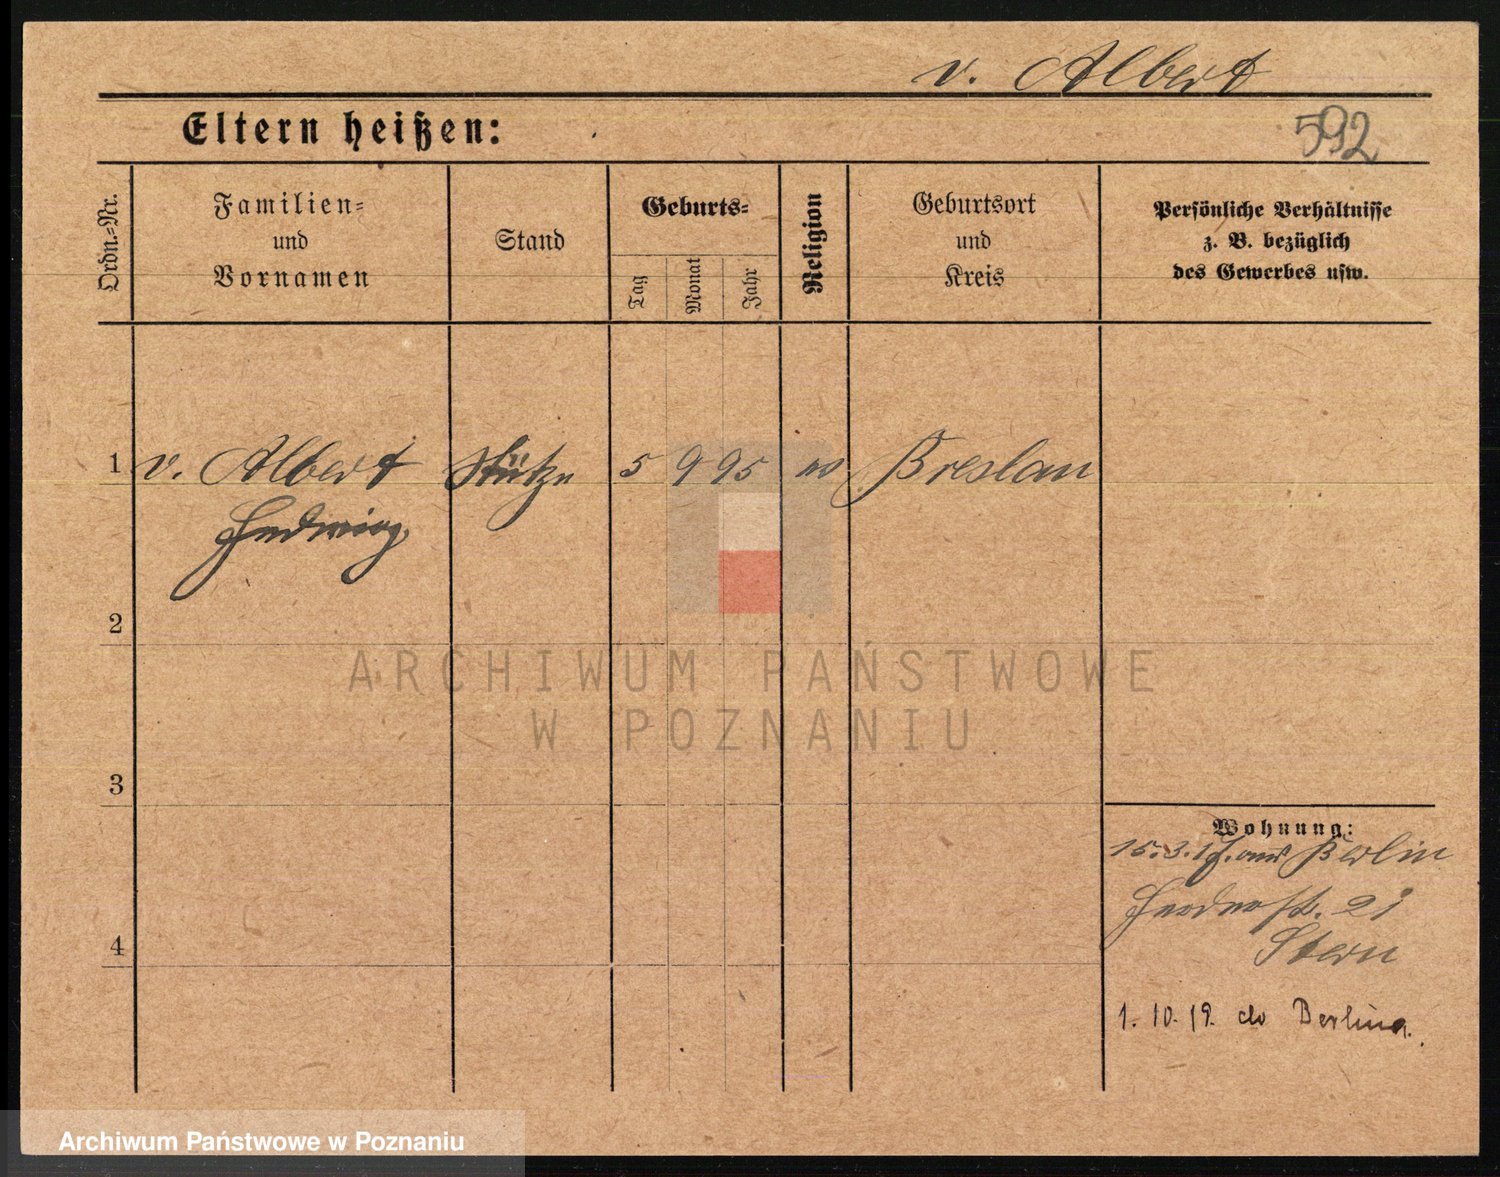 v. Albert
Eltern heißen:
592
Ordn.-Nr.
Familien-
und
Vornamen
Stand
Geburts-
Tag
Monat
Jahr
Religion
Geburtsort
und
Kreis
Persönliche Verhältnisse
z. B. bezüglich
des Gewerbes usw.
1 v. Albert Stütze 5 9 95 Breslau
Hedwig
2
ARCHIWUM PAŃSTWOWE
W POZNANIU
3
Wohnung:
15.3.17. aus Berlin
21
Stern
4
1. 10. 19. do Berlina.
Archiwum Państwowe w Poznaniu